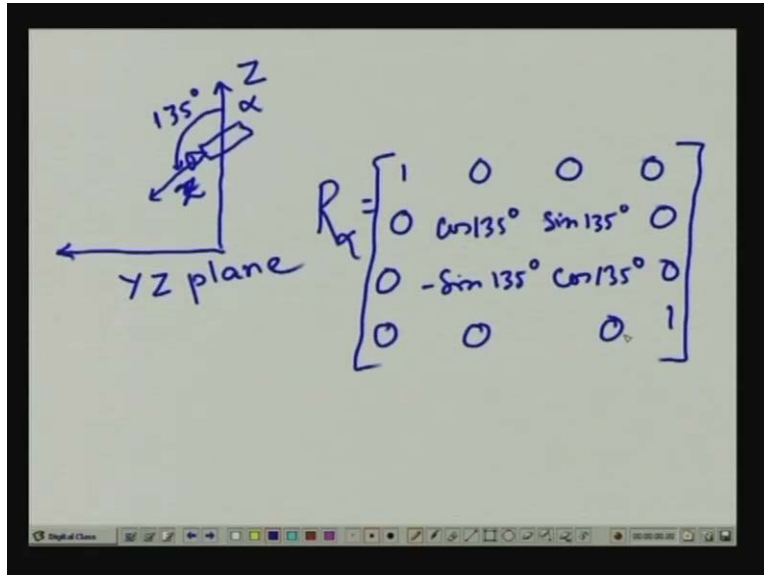 Z
135° α
YZ plane
R_α = [ 1 0 0 0
0 cos135° sin135° 0
0 -Sin 135° cos135° 0
0 0 0 1 ]
Digital Class 00:00:00:00